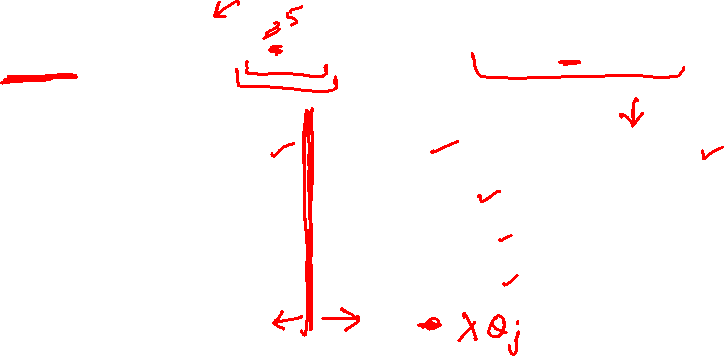 5
λθj